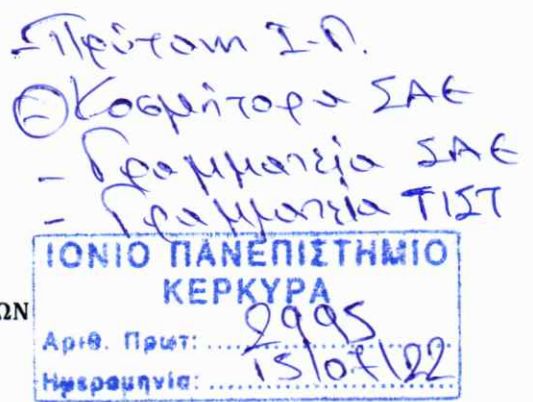 - Πρύτανη Ι.Π.
- Κοσμήτορα ΣΑΕ
- Γραμματεία ΣΑΕ
- Γραμματεία ΤΙΣΤ
ΙΟΝΙΟ ΠΑΝΕΠΙΣΤΗΜΙΟ
ΚΕΡΚΥΡΑ
ΩΝ
Αριθ. Πρωτ: 2995
Ημερομηνία: 15/07/22